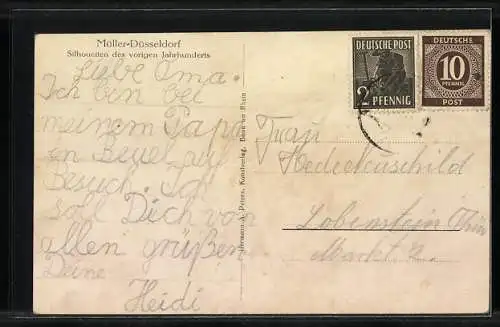 Müller-Düsseldorf
Silhouetten des vorigen Jahrhunderts
Liebe Oma.
Ich bin bei
meinem Papa
in Beuel auf
Besuch. Ich
soll Dich von
allen grüßen
Deine
Heidi
Hermann A. Peters, Kunstverlag, Bonn am Rhein
DEUTSCHE POST
2 PFENNIG
DEUTSCHE
10
PFENNIG
POST
Frau
Lobenstein Thür
Markt 2